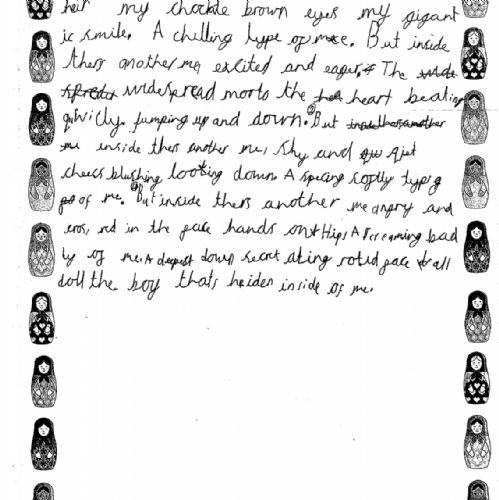 heir my choclate brown eyes my gigant
ic smile. A chilling type of me. But inside
thers another me, excited and eager. The
widespread mouth the heart beating
qwicly. Jumping up and down. But
inside thers another me, shy and quiet
cheecs blushing looking down. A speacing softly type
of me. But inside thers another me angry and
cros, red in the face hands on Hips A screaming bad
ty of me. A deepest down secret
doll the boy thats hidden inside of me.